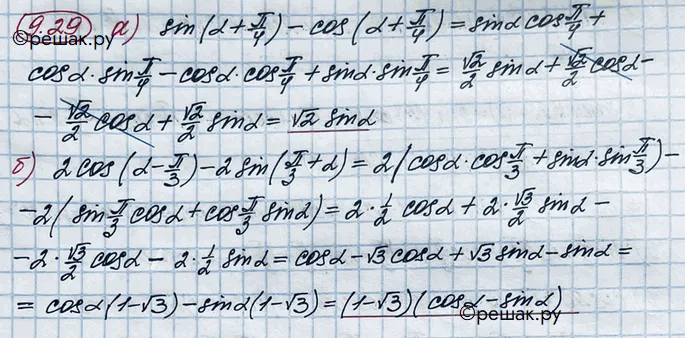 9.29 а) sin(α+π/4) - cos(α+π/4) = sinα cos π/4 +
©решак.ру
cosα·sin π/4 - cosα·cos π/4 + sinα·sin π/4 = √2/2 sinα + √2/2 cosα -
- √2/2 cosα + √2/2 sinα = √2 sinα
б) 2cos(α-π/3) - 2sin(π/3+α) = 2(cosα·cos π/3 + sinα·sin π/3) -
-2(sin π/3 cosα + cos π/3 sinα) = 2·1/2 cosα + 2·√3/2 sinα -
-2·√3/2 cosα - 2·1/2 sinα = cosα - √3 cosα + √3 sinα - sinα =
= cosα(1-√3) - sinα(1-√3) = (1-√3)(cosα - sinα)
©решак.ру